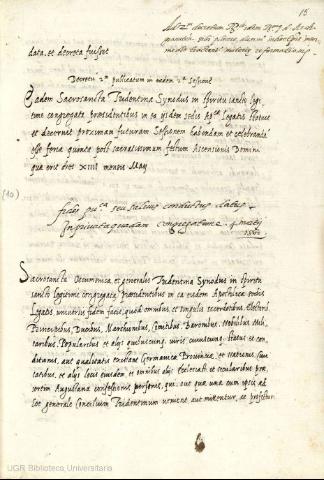 15
data, et decreta fuisse
Decretu 2ᵐ publicatum in eadem 2ª Sessione
Eadem Sacrosancta Tridentina Synodus in spiritu sancto legi,
time congregata præsidentibus in ea eisdem sedis Apᶜᵃ Legatis statuit
et decernit proximam futuram Sessionem habendam et celebrandã
esse feria quinta post sacratissimum festum Ascensionis Domini
que erit dies XIIII mensis Maij
(10)
fides puᶜᵃ seu salvus conductus datus
in congregatione 4 martij
1562
Sacrosancta Oecumenica, et generalis Tridentina Synodus in spiritu
sancto legitime congregata præsidentibus in ea eisdem Apostolicæ sedis
Legatis universis fidem facit, quod omnibus et singulis sacerdotibus, electoribus
Principibus, Ducibus, Marchionibus, Comitibus, Baronibus, nobilibus mili,
taribus, Popularibus et alijs quibuscunq. viris cuiuscunq. status et con,
ditionis, aut qualitatis existant Germanicæ Provinciæ, et nationis, civi
tatibus, et alijs locis eiusdem, et omnibus alijs ecclesiasticis et secularibus præ,
sertim Augustanæ confessionis personis, qui, aut quæ una cum ipsis ad
hoc generale Concilium Tridentinum venient, aut mittentur, ac profectur
UGR Biblioteca Universitaria